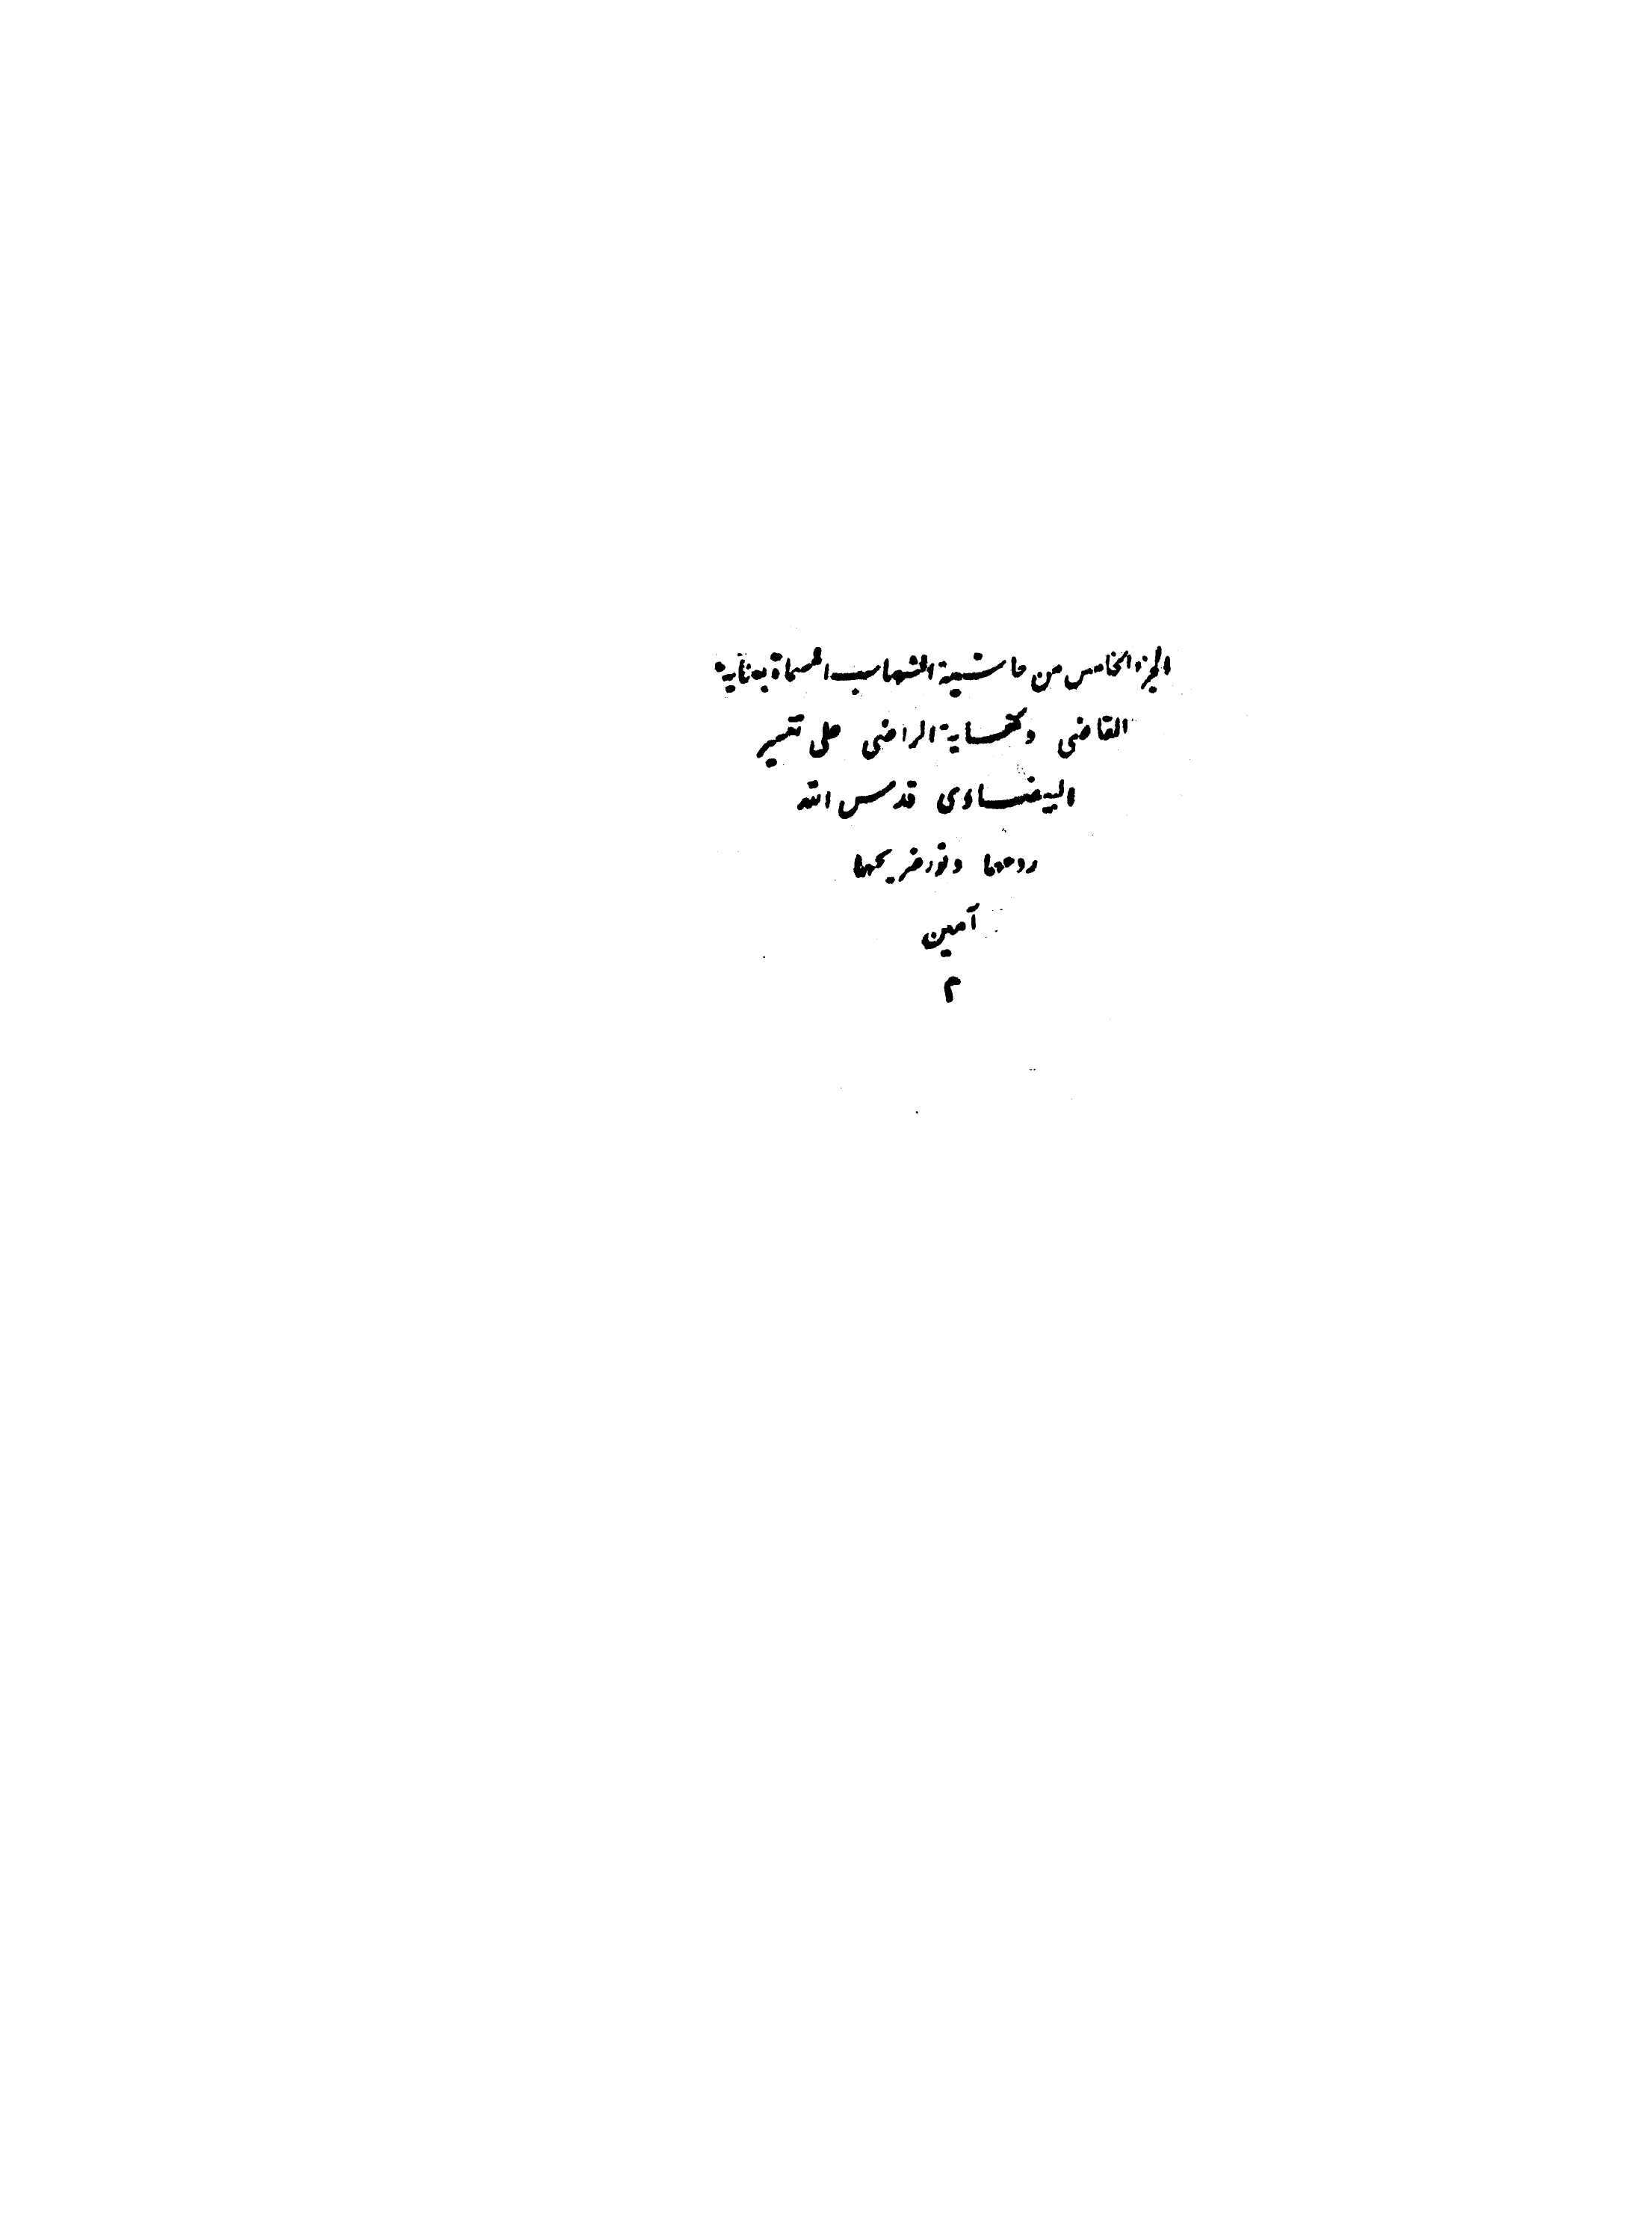 الجزء الخامس من حاشية الشهاب المسماة بعناية
القاضى وكفاية الراضى على تفسير
البيضاوى قدس الله
روحهما ونور ضريحهما
آمين
م